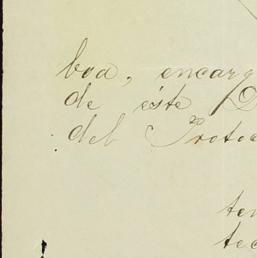 boa, encarg
de éste D
del Protoc
ten
tec